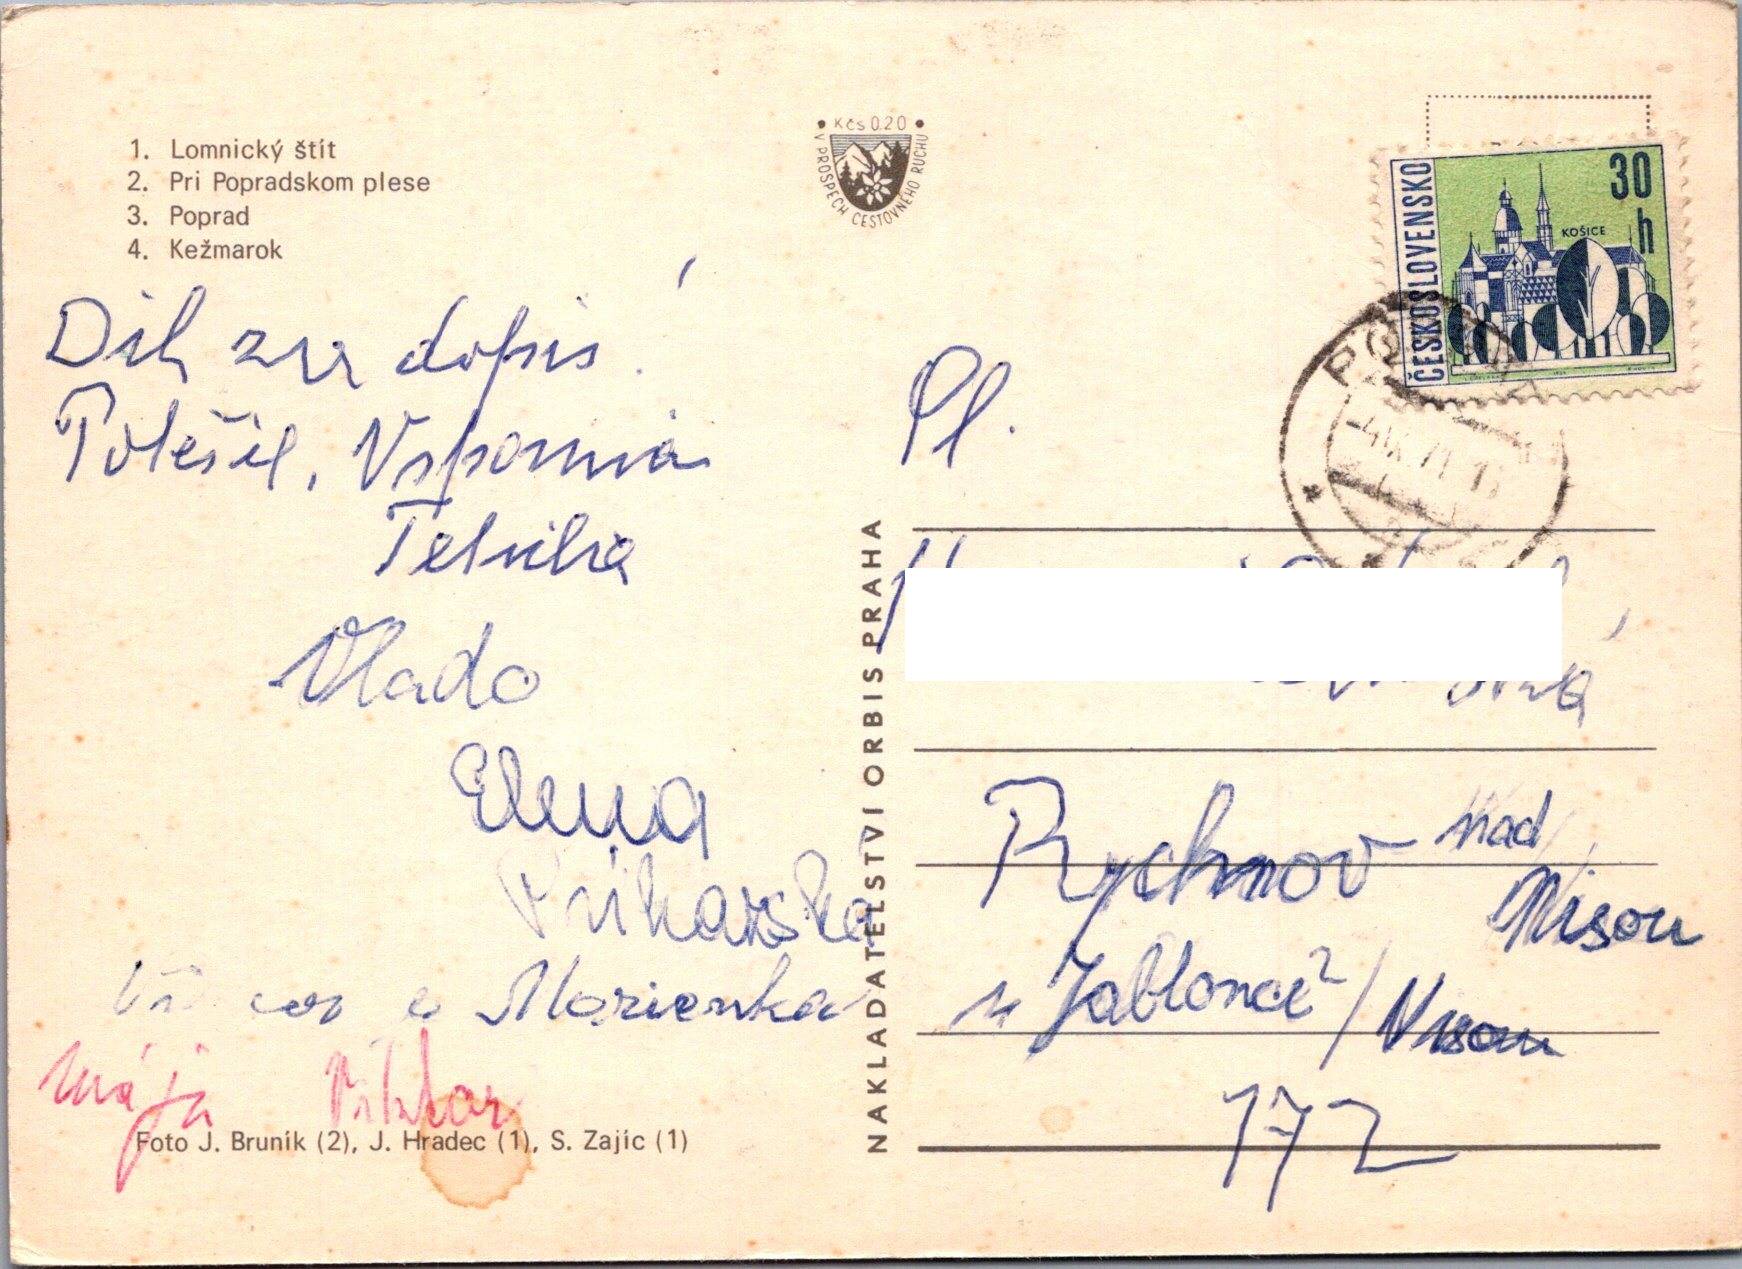 1. Lomnický štít
2. Pri Popradskom plese
3. Poprad
4. Kežmarok
Kčs 0.20
V PROSPECH CESTOVNÉHO RUCHU
ČESKOSLOVENSKO
30
h
KOŠICE
dopis
Potěšil, Vspomína
Vlado
Elena
a Marienka
Mája Viktor
Foto J. Bruník (2), J. Hradec (1), S. Zajíc (1)
NAKLADATELSTVÍ ORBIS PRAHA
Pl.
Rychnov nad
Nisou
u Jablonce / Nisou
172